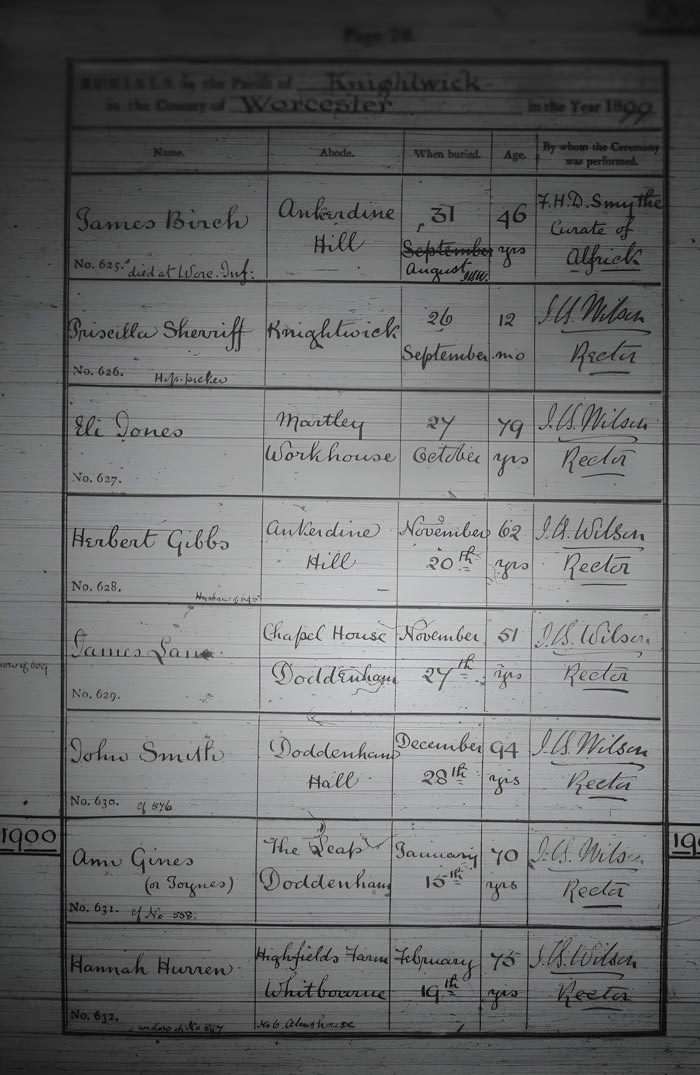 Page 79.
BURIALS in the Parish of Knightwick
in the County of Worcester in the Year 1899
Name. Abode. When buried. Age. By whom the Ceremony was performed.
James Birch Ankerdine 31 46 F.H.D. Smythe
Hill September yrs Curate of
No. 625. died at Worc. Inf: August Alfrick
Priscilla Sherriff Knightwick 26 12 J.B. Wilson
September mo Rector
No. 626. Hop-picker
Eli Jones Martley 27 79 J.B. Wilson
Workhouse October yrs Rector
No. 627.
Herbert Gibbs Ankerdine November 62 J.B. Wilson
Hill 20th yrs Rector
No. 628.
Husband of
James Lane Chapel House November 51 J.B. Wilson
Doddenham 27th yrs Rector
No. 629.
John Smith Doddenham December 94 J.B. Wilson
Hall 28th yrs Rector
No. 630. cf 576
1900
Ann Gines The Leap January 70 J.B. Wilson
(or Joynes) Doddenham 15th yrs Rector
No. 631. cf No 558.
Hannah Hurren Highfields Farm February 75 J.B. Wilson
Whitbourne 19th yrs Rector
No. 632. widow of No 547 No 6 Almshouse